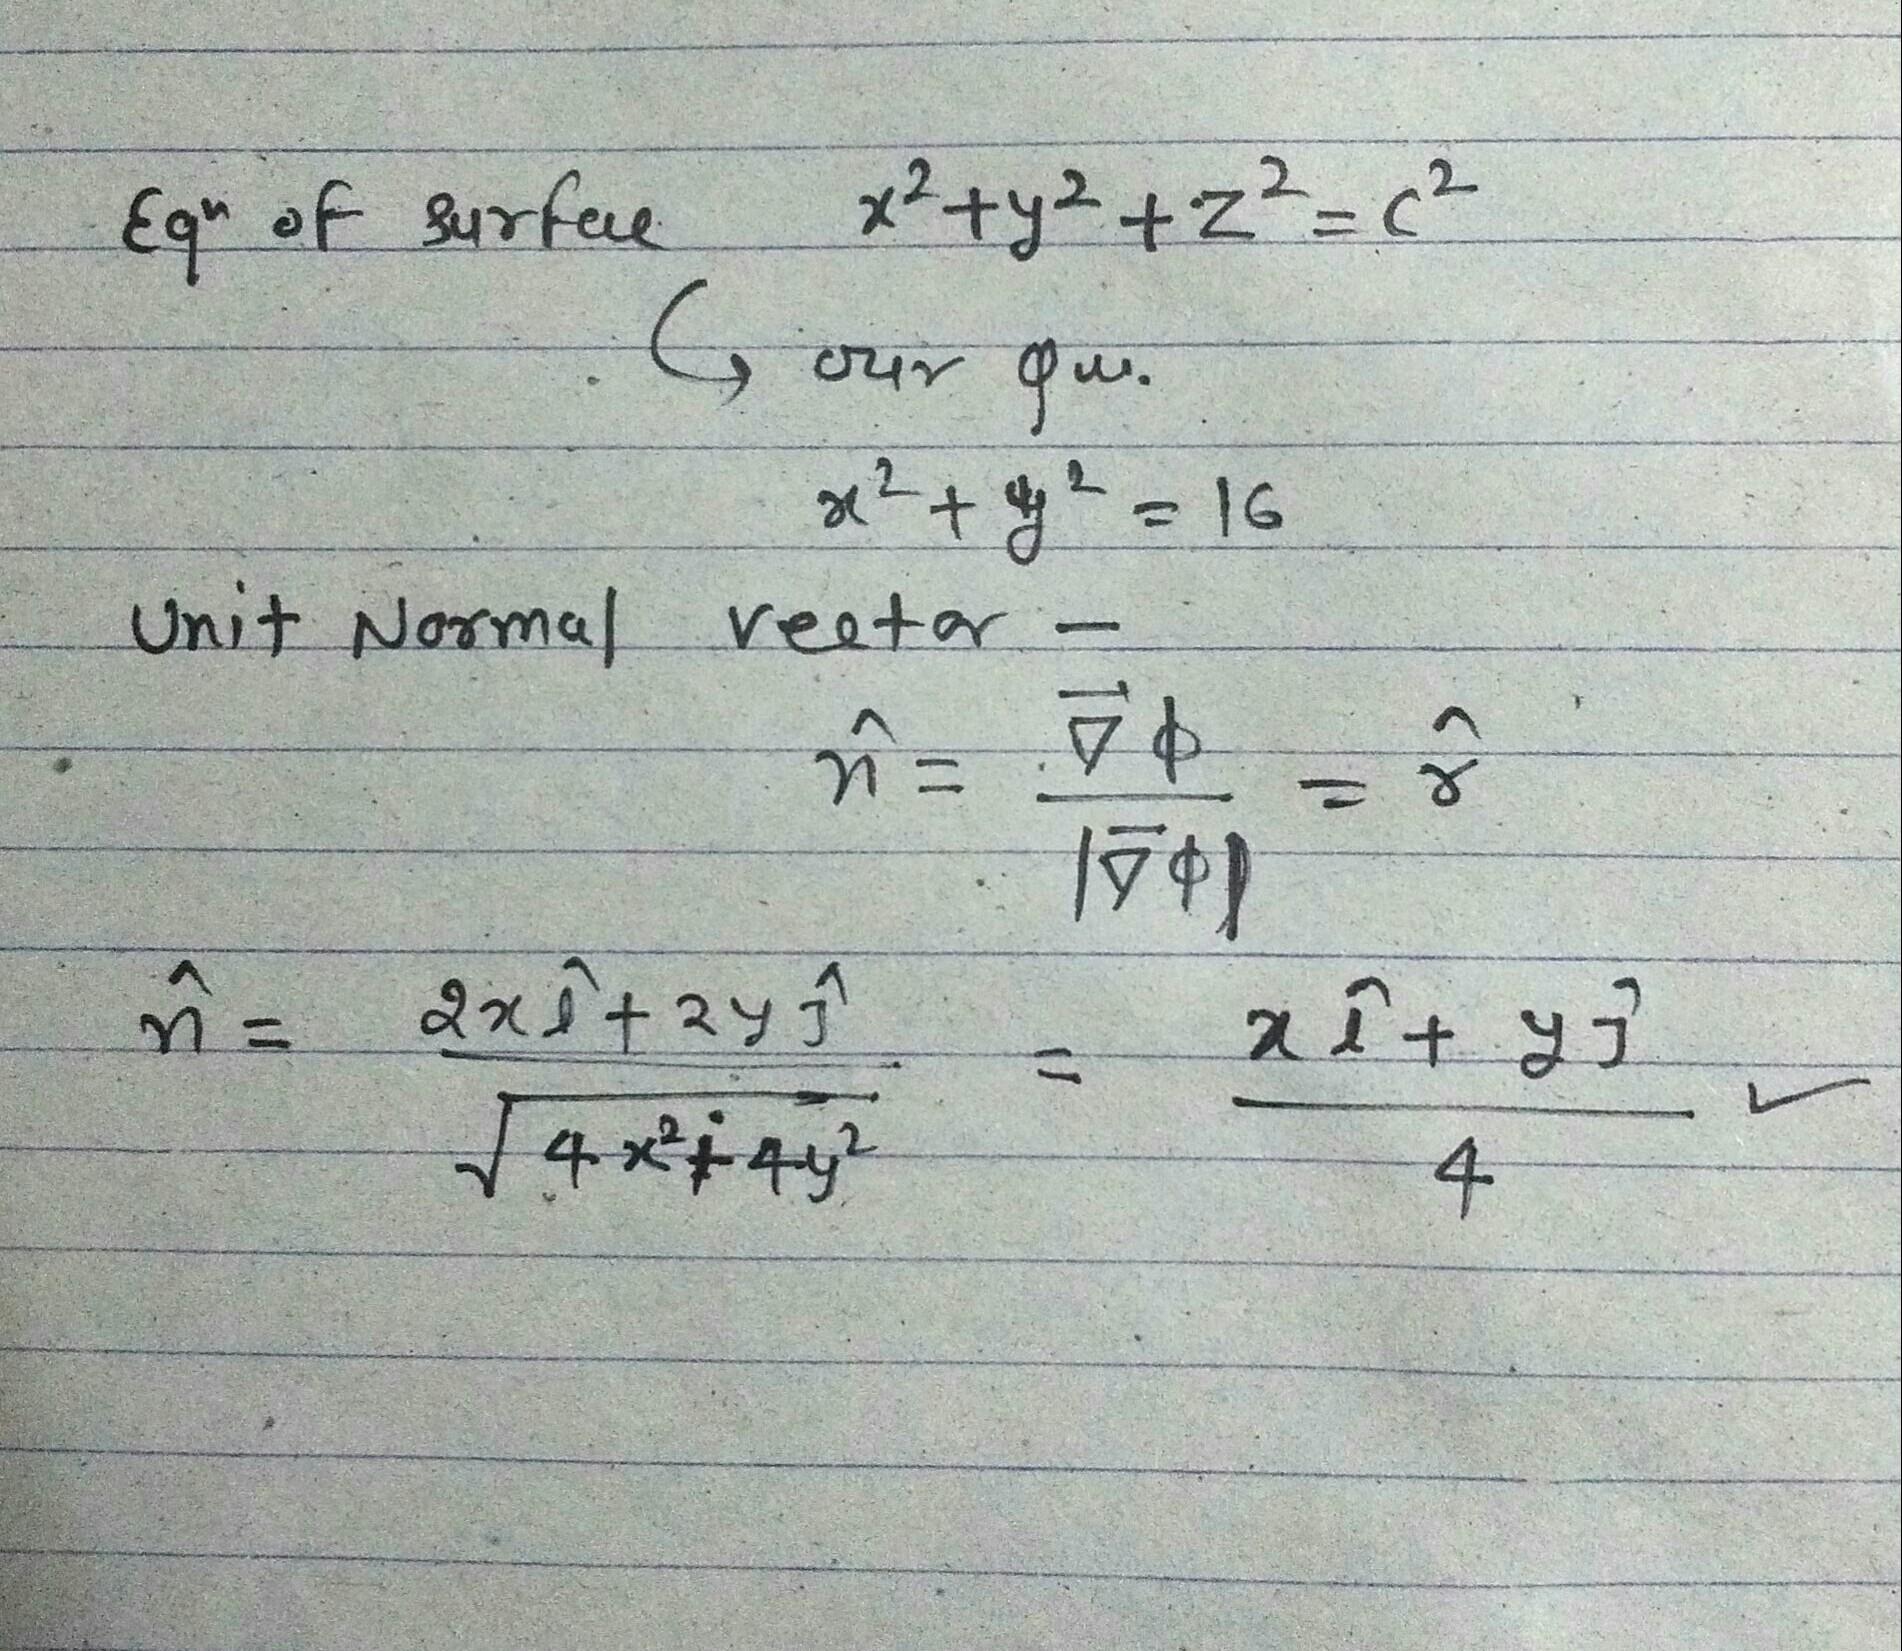 Eqⁿ of surface x² + y² + z² = c²
↳ our qu.
x² + y² = 16
Unit Normal vector —
n̂ = ∇⃗ϕ / |∇⃗ϕ| = r̂
n̂ = (2xî + 2yĵ) / √(4x² + 4y²) = (xî + yĵ) / 4 ✓